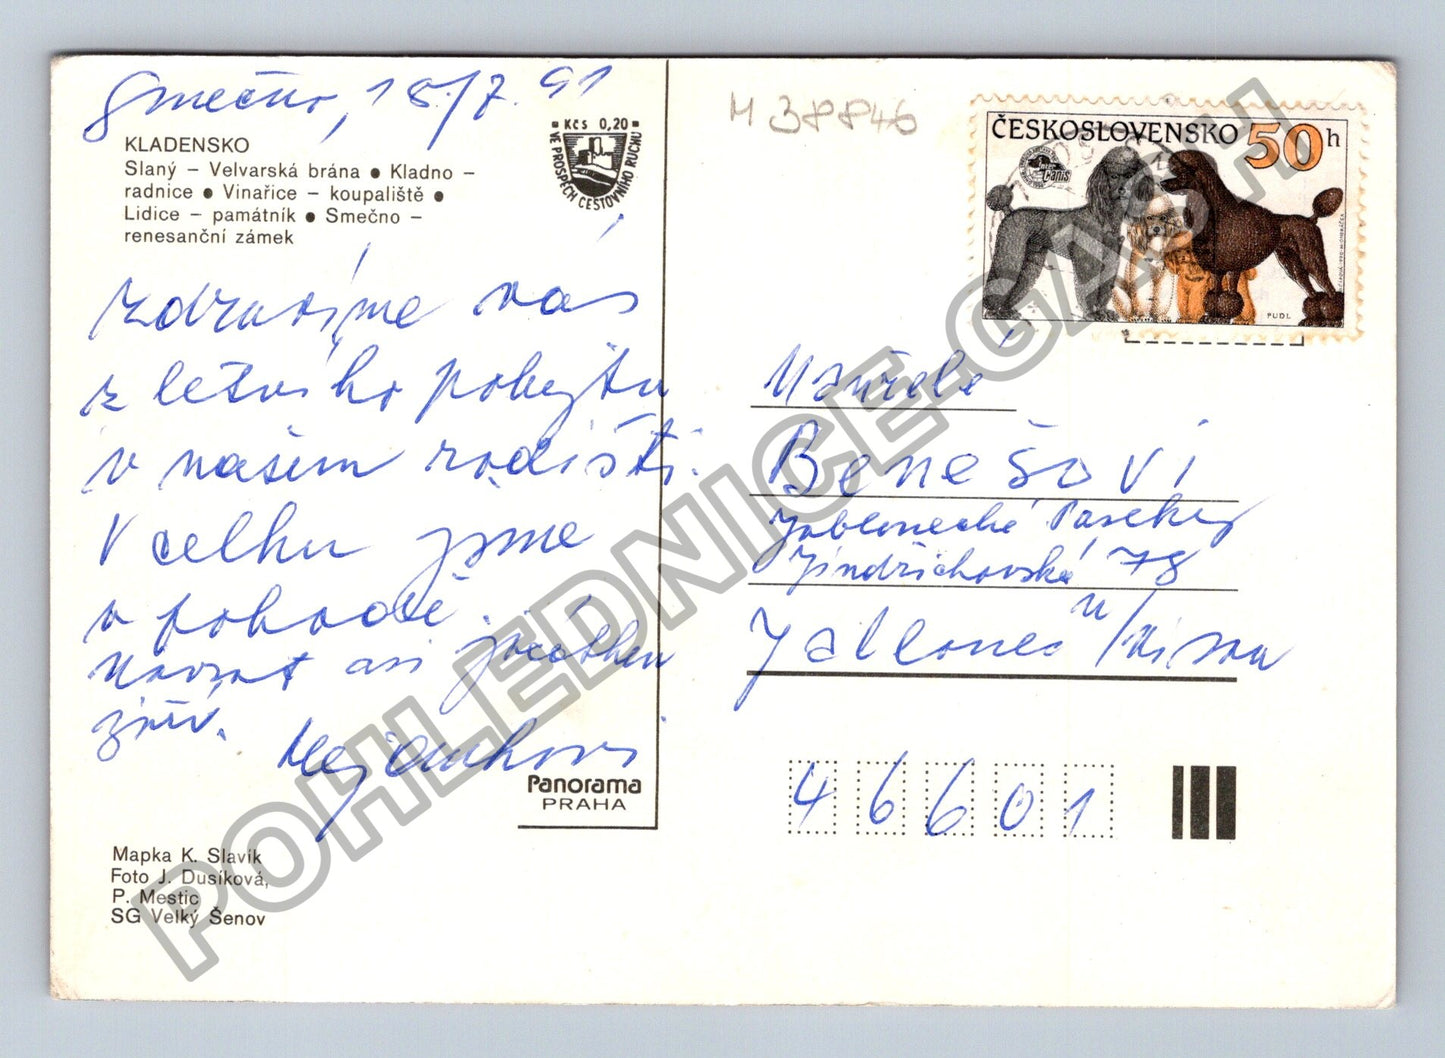 Smečno, 18/7. 91
KLADENSKO
Slaný – Velvarská brána ● Kladno –
radnice ● Vinařice – koupaliště ●
Lidice – památník ● Smečno –
renesanční zámek
Kčs 0,20
VE PROSPĚCH CESTOVNÍHO RUCHU
zdravíme vás
z letního pobytu
v našem rodišti.
V celku jsme
v pohodě.
Návrat asi
Panorama
PRAHA
Mapka K. Slavík
Foto J. Dusíková,
P. Mestic
SG Velký Šenov
M 38846
ČESKOSLOVENSKO 50 h
canis
PUDL
Manželé
Benešovi
Jablonecké Paseky
Jindřichovská 78
Jablonec n/Nisou
46601
POHLEDNICE-CASH